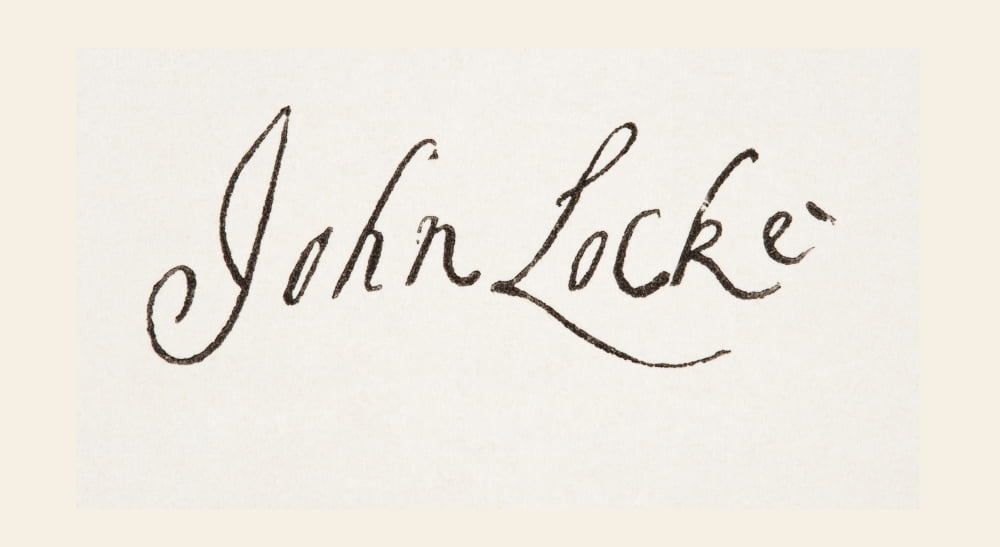 John Locke